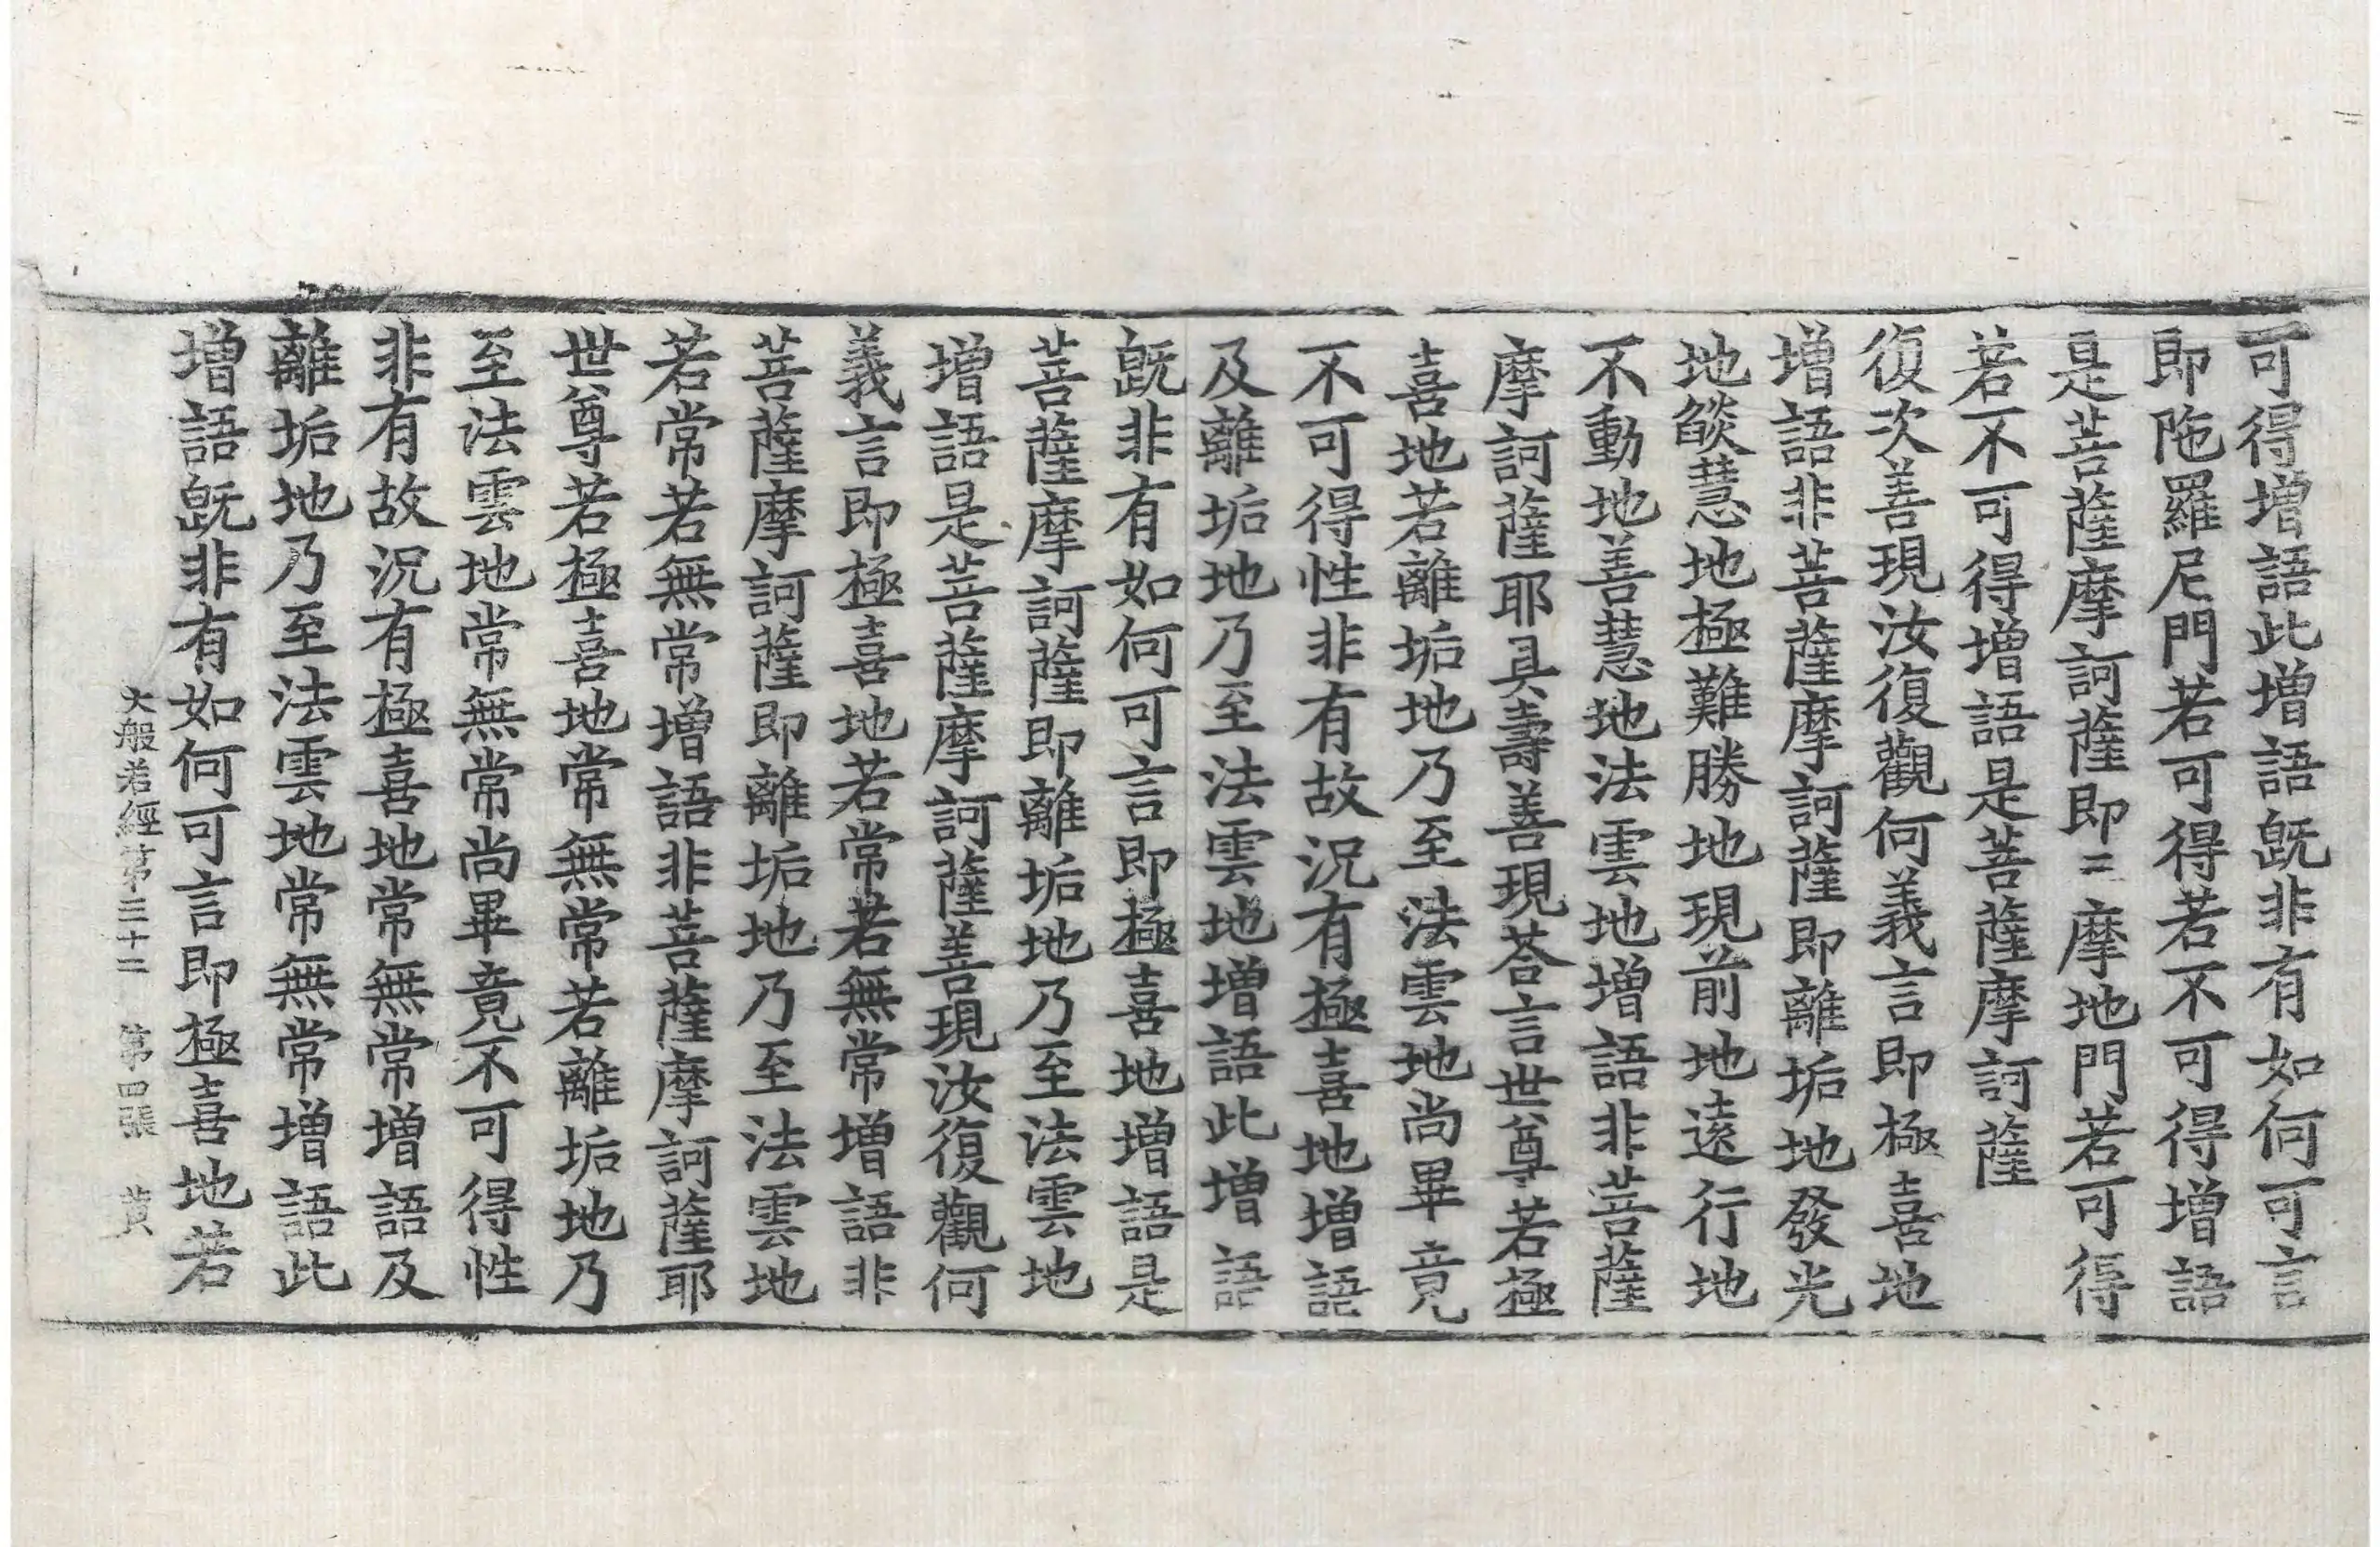 可得增語此增語旣非有如何可言
即陁羅尼門若可得若不可得增語
是菩薩摩訶薩即三摩地門若可得
若不可得增語是菩薩摩訶薩
復次善現汝復觀何義言即極喜地
增語非菩薩摩訶薩即離垢地發光
地燄慧地極難勝地現前地遠行地
不動地善慧地法雲地增語非菩薩
摩訶薩耶具壽善現荅言世尊若極
喜地若離垢地乃至法雲地尚畢竟
不可得性非有故況有極喜地增語
及離垢地乃至法雲地增語此增語
旣非有如何可言即極喜地增語是
菩薩摩訶薩即離垢地乃至法雲地
增語是菩薩摩訶薩善現汝復觀何
義言即極喜地若常若無常增語非
菩薩摩訶薩即離垢地乃至法雲地
若常若無常增語非菩薩摩訶薩耶
世尊若極喜地常無常若離垢地乃
至法雲地常無常尚畢竟不可得性
非有故況有極喜地常無常增語及
離垢地乃至法雲地常無常增語此
增語旣非有如何可言即極喜地若
大般若經第三十二 第四張 黃